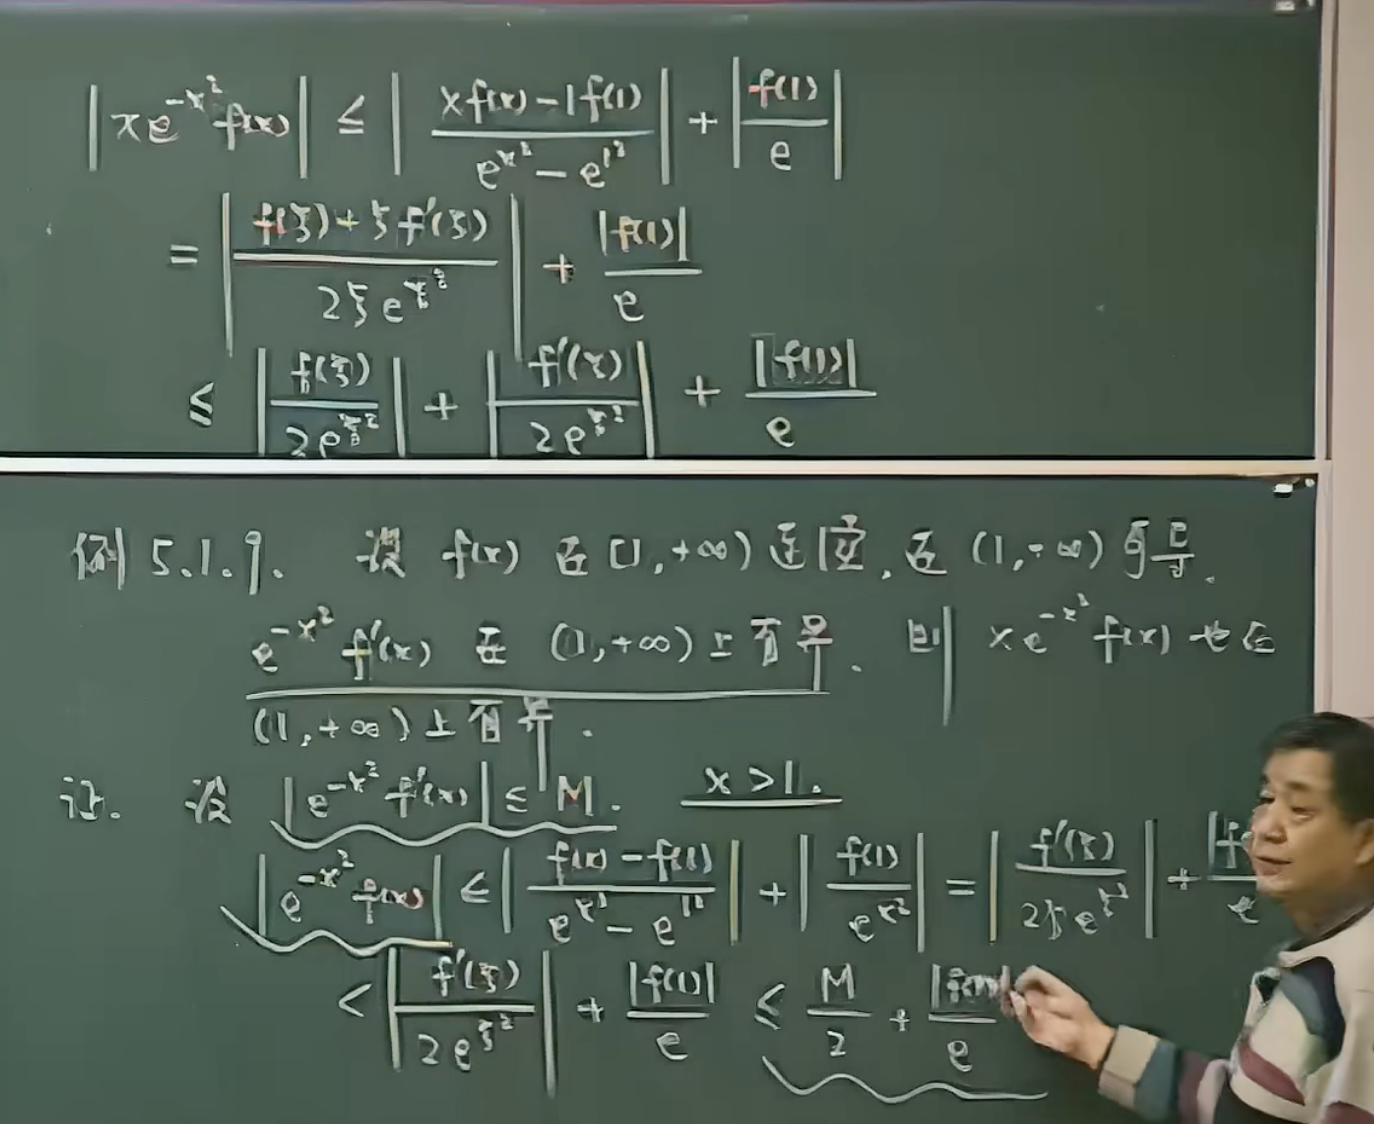 |xe^{-x²}f(x)| ≤ |(xf(x)-1f(1))/(e^{x²}-e^{1²})| + |f(1)/e|
= |(f(ξ)+ξf'(ξ))/(2ξe^{ξ²})| + |f(1)|/e
≤ |f(ξ)/(2e^{ξ²})| + |f'(ξ)/(2e^{ξ²})| + |f(1)|/e
例5.1.9. 设 f(x) 在[1,+∞)连续,在(1,+∞)可导.
e^{-x²}f'(x) 在 (1,+∞)上有界. 则 xe^{-x²}f(x) 也在
(1,+∞)上有界.
证. 设 |e^{-x²}f'(x)| ≤ M. x>1.
|e^{-x²}f(x)| ≤ |(f(x)-f(1))/(e^{x²}-e^{1²})| + |f(1)/e^{x²}| = |f'(ξ)/(2ξe^{ξ²})| + |f
< |f'(ξ)/(2e^{ξ²})| + |f(1)|/e ≤ M/2 + |f(1)|/e